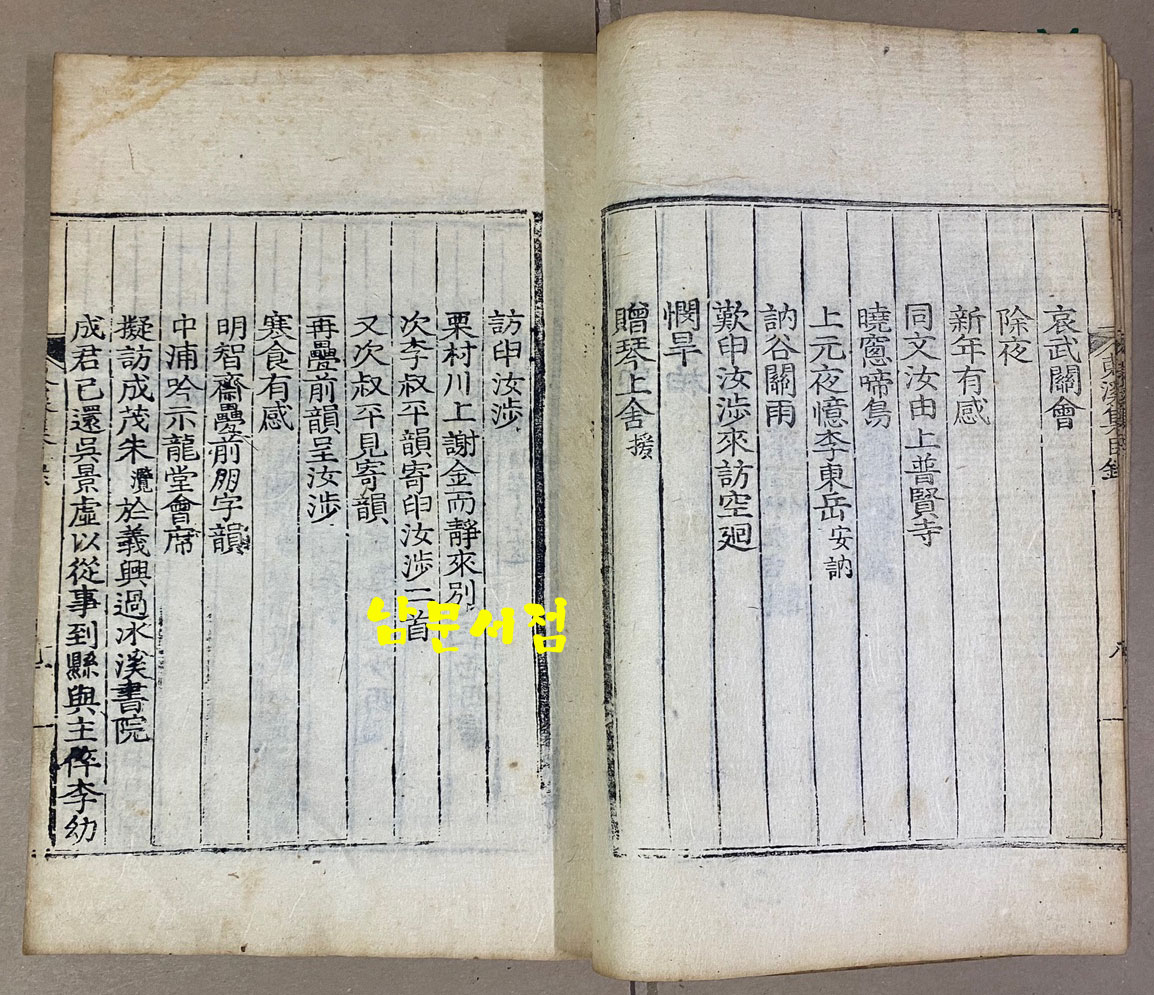 哀武關會
除夜
新年有感
同文汝由上普賢寺
曉窓啼鳥
上元夜憶李東岳安訥
訥谷關雨
歎申汝涉來訪空廻
憫旱
贈琴上舍援
訪申汝涉
栗村川上謝金而靜來別
次李叔平韻寄申汝涉二首
又次叔平見寄韻
再疊前韻呈汝涉
寒食有感
明智齋疊前朋字韻
中浦吟示龍堂會席
擬訪成茂朱灠於義興過氷溪書院
成君已還吳景虛以從事到縣與主倅李幼
남문서점